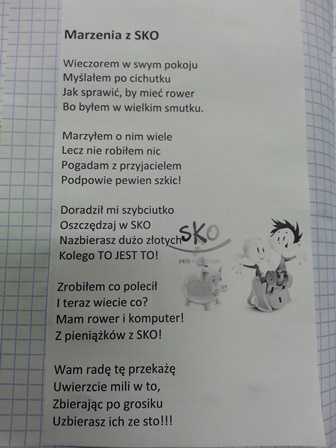 Marzenia z SKO
Wieczorem w swym pokoju
Myślałem po cichutku
Jak sprawić, by mieć rower
Bo byłem w wielkim smutku.
Marzyłem o nim wiele
Lecz nie robiłem nic
Pogadam z przyjacielem
Podpowie pewien szkic!
Doradził mi szybciutko
Oszczędzaj w SKO
Nazbierasz dużo złotych
Kolego TO JEST TO!
SKO
Zrobiłem co polecił
I teraz wiecie co?
Mam rower i komputer!
Z pieniążków z SKO!
Wam radę tę przekażę
Uwierzcie mili w to,
Zbierając po grosiku
Uzbierasz ich ze sto!!!